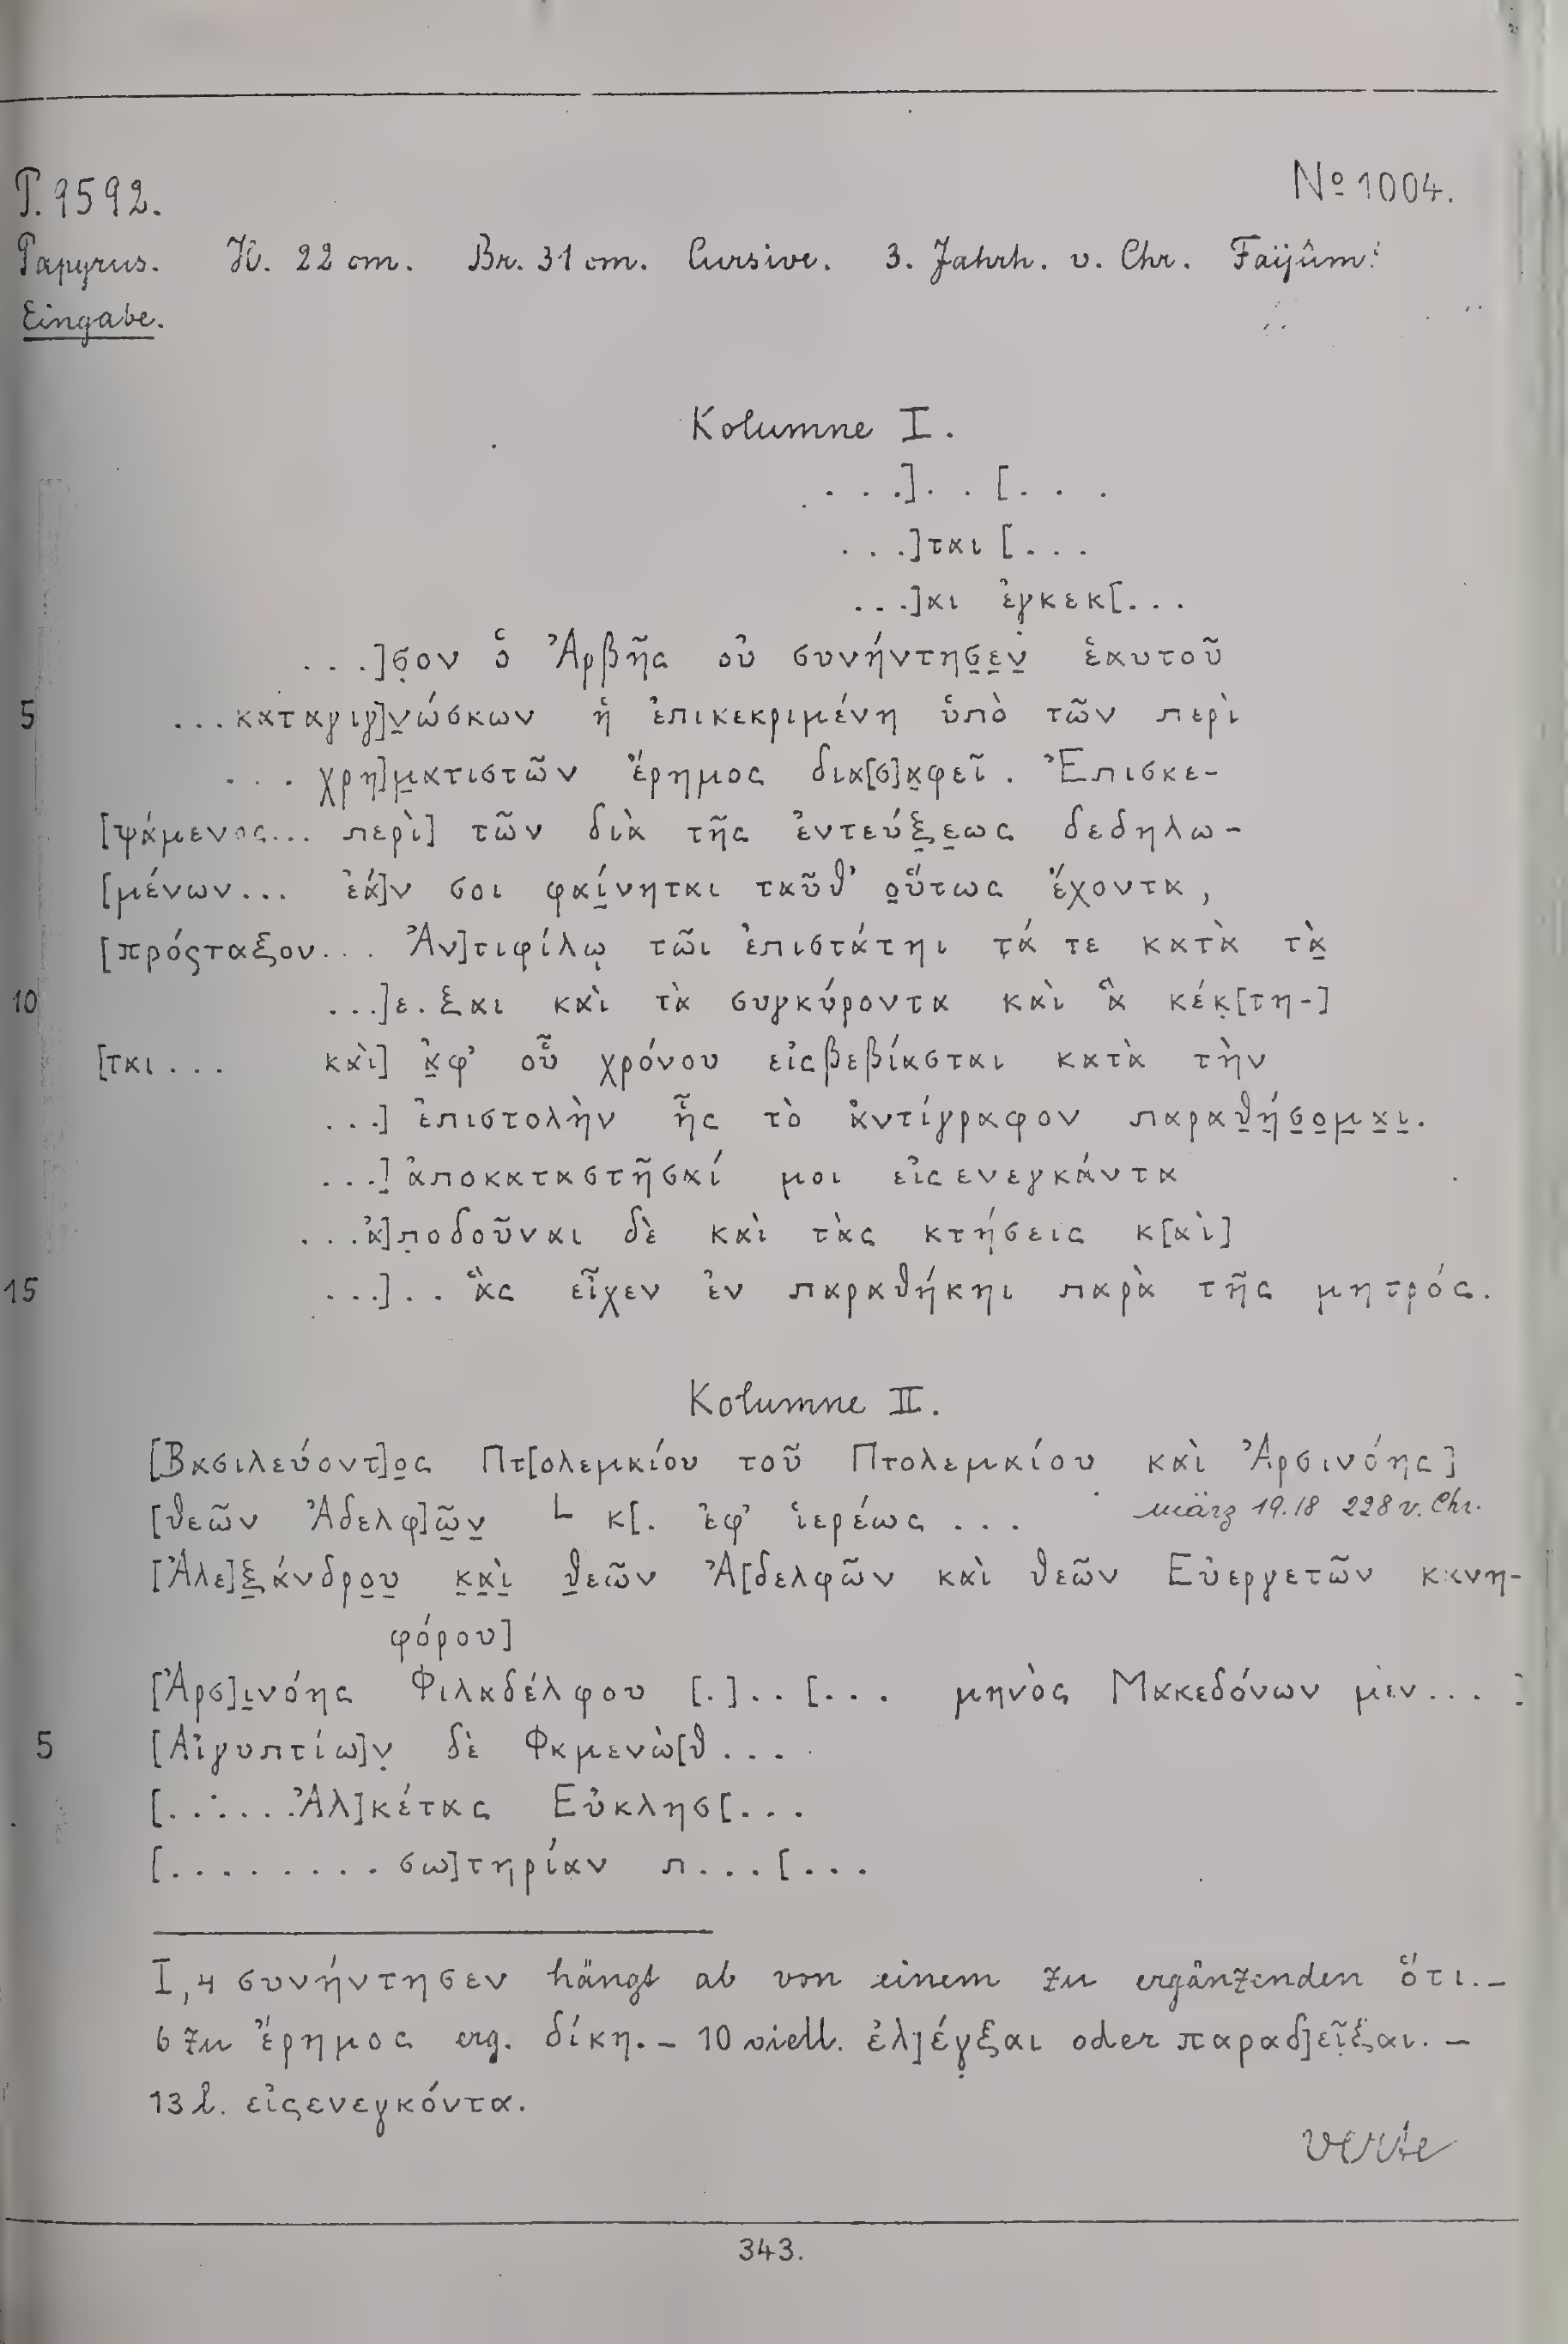 P. 9592.
No 1004.
Papyrus. H. 22 cm. Br. 31 cm. Cursive. 3. Jahrh. v. Chr. Faijûm.
Eingabe.
Kolumne I.
. . .]. . [. . .
. . .]ται [. . .
. . .]αι ἐγκεκ[. . .
. . .]σ̣ον ὁ Ἀρβῆς οὐ συνήντησ̣ε̣ν̣ ἑαυτοῦ
5 ...καταγιγ]ν̣ώσκων ἡ ἐπικεκριμένη ὑπὸ τῶν περὶ
. . . χρη]μ̣ατιστῶν ἔρημος δια[σ]α̣φεῖ. Ἐπισκε-
[ψάμενος... περὶ] τῶν διὰ τῆς ἐντεύξ̣ε̣ως δεδηλω-
[μένων... ἐὰ]ν σοι φαί̣νηται ταῦθ’ ο̣ὕτως ἔχοντα,
[πρόςταξον. . . Ἀν]τιφίλῳ τῶι ἐπιστάτηι τ̣ά τε κατὰ τὰ̣
10 ...]ε. ξαι καὶ τὰ συγκύροντα καὶ ἃ κέκ̣[τη-]
[ται . . . καὶ] ἀ̣φ’ οὗ χρόνου εἰςβεβίασται κατὰ τὴν
. . .] ἐπιστολὴν ἧς τὸ ἀντίγραφον παραθ̣ή̣σ̣ο̣μ̣α̣ι̣.
. . .] ἀποκαταστῆσαί μοι εἰςενεγκάντα
. . .ἀ]π̣οδοῦναι δὲ καὶ τὰς κτήσεις κ[αὶ]
15 ...]. . ἃς εἶχεν ἐν παραθήκηι παρὰ τῆς μητρός.
Kolumne II.
[Βασιλεύοντ]ο̣ς Πτ[ολεμαίου τοῦ Πτολεμαίου καὶ Ἀρσινόης]
[θεῶν Ἀδελφ]ῶ̣ν̣ L κ[. ἐφ’ ἱερέως . . . märz 19.18 228 v. Chr.
[Ἀλε]ξ̣άνδρο̣υ̣ κ̣α̣ὶ̣ θ̣εῶν Ἀ[δελφῶν καὶ θεῶν Εὐεργετῶν κανη-
φόρου]
[Ἀρσ]ι̣νόης Φιλαδέλφου [.]. . [. . . μηνὸς Μακεδόνων μὲν... ]
5 [Αἰγυπτίω]ν̣ δὲ Φαμενὼ[θ . . .
[. . . . . . Ἀλ]κέτας Εὐκλησ[. . .
[. . . . . . . . σω]τηρίαν π. . . [. . .
I,4 συνήντησεν hängt ab von einem zu ergänzenden ὅτι. –
6 zu ἔρημος erg. δίκη. – 10 viell. ἐλ]έγ̣ξαι oder παραδ]εῖ̣ξαι. –
13 l. εἰςενεγκόντα.
verte
343.